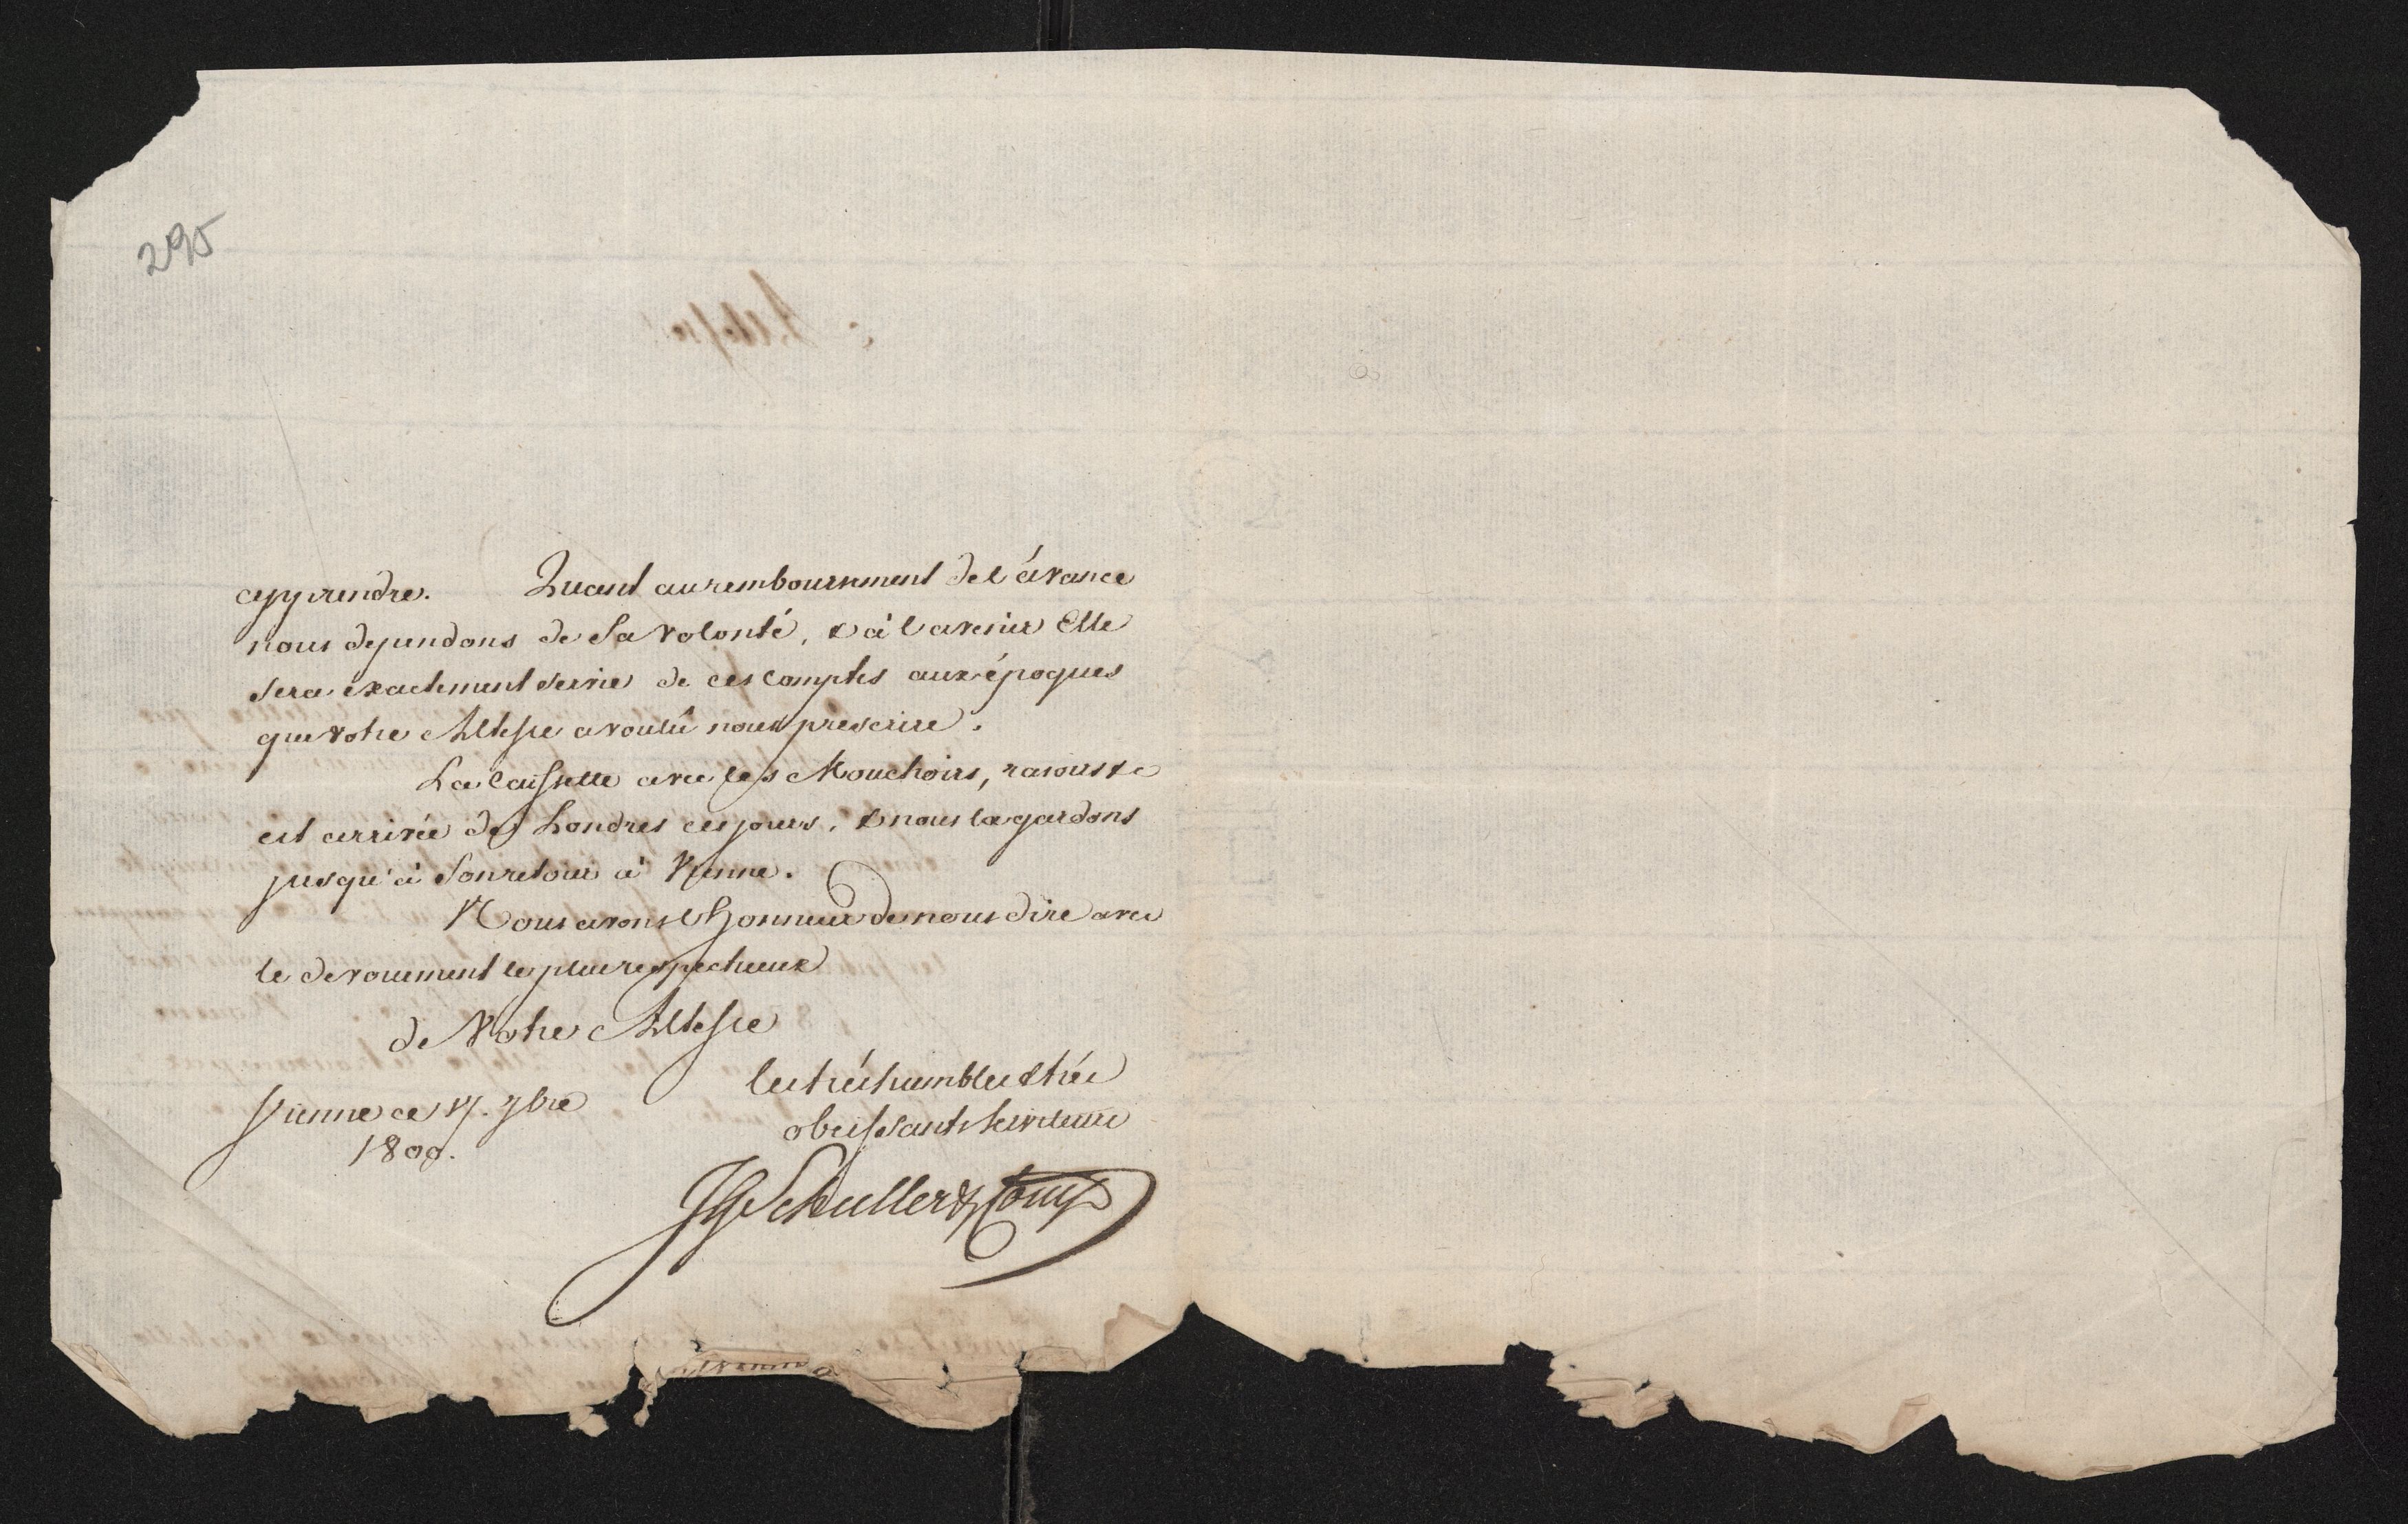 295
apprendre. Quant au remboursement de l'avance
nous dependons de Sa Volonté, & à l'avenir Elle
sera exactement servie de ces Comptes aux époques
que Votre Altesse a voulû nous prescrire.
La Caissette avec les Mouchoirs, rasoirs &c
est arrivée de Londres ces jours, & nous la gardons
jusqu'à Son retour à Vienne.
Nous avons l'honneur de nous dire avec
le devouement le plus respectueux
de Votre Altesse
les très humbles & très
obeissants Serviteurs
Vienne ce 17. 7bre
1800.
JG Schuller & Comp